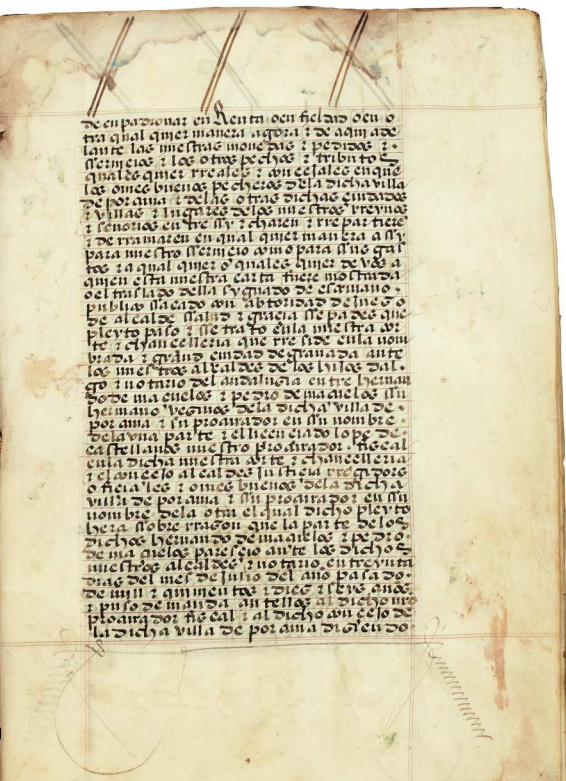 de enpadronar en Renta o en fieldad o en o
tra qual quier manera agora & de aqui ade
lante las nuestras monedas & pedidos & .
sserujcios & los otros pechos & tributos
quales quier rreales & conçejales en que
los omes buenos pecheros dela dicha villa
de porcuna & delas otras dichas çiudades
& villas & lugares delos nuestros rreynos
& señorios entre ssy & charen & rrepartiere
& de rramaren en qual quier manera assy
para nuestro sseruiçio como para ssus gas
tos & a qual quier o quales quier de vos a
quien esta nuestra carta fuere mostrada
o el traslado della sygnado de escriuano .
publico ssacado con abtoridad de juez o
de alcalde ssalud & graçia ssepades que
pleyto paso & sse trato enla nuestra cor
te & chançelleria que rreside enla nom
brada & grand çiudad de granada ante
los nuestros alcaldes de los hijos dal .
go & notario del andaluzia entre hernan
do de maçuelos & pedro de maçuelos ssu
hermano vezinos dela dicha villa de .
porcuna & su procurador en ssu nombre .
dela vna parte & el liçençiado lope de .
castellanos nuestro procurador . fiscal
enla dicha nuestra corte & chançelleria
& el conçejo alcaldes justiçia rregidores
ofiçiales & omes buenos dela dicha
villa de porcuna & ssu procurador en ssu
nombre dela otra el qual dicho pleyto
hera ssobre rrazon que la parte de los
dichos hernando de maçuelos & pedro .
de maçuelos paresçio ante los dichos
nuestros alcaldes & notario en treynta
dias del mes de julio del año pasado .
de mill & quinientos & diez & seys años
& puso demanda antellos al dicho nro
procurador fiscal & al dicho conçejo de
la dicha villa de porcuna diziendo